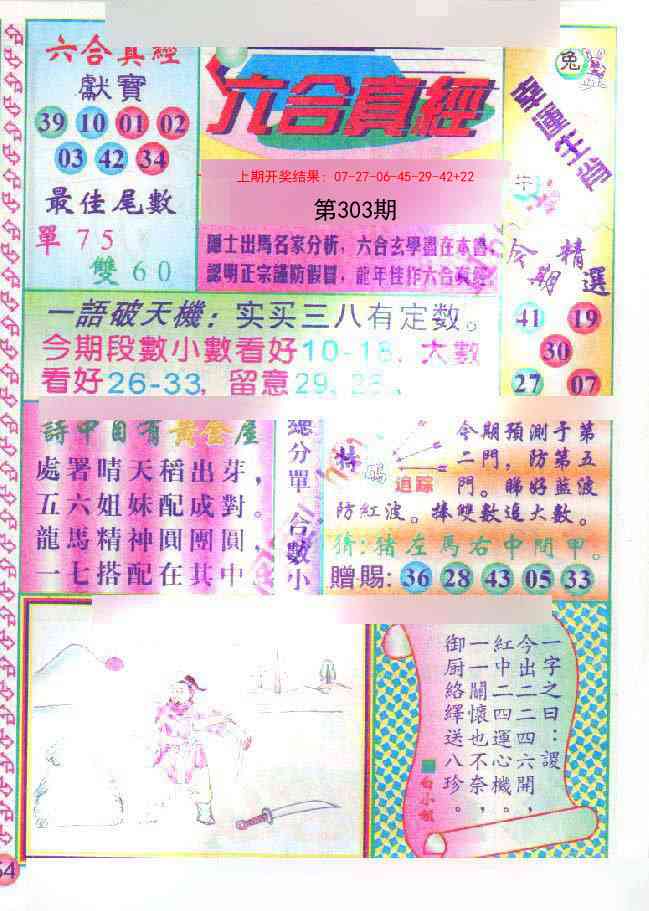 六合真經
獻寶
39 10 01 02
03 42 34
最佳尾數
單 75
雙 60
六合真經
上期开奖结果：07-27-06-45-29-42+22
第303期
隱士出馬名家分析，六合玄學盡在本書，
認明正宗謹防假冒，龍年佳作六合真經。
兔
牛
幸運生肖
今期精選
41 19
30
27 07
一語破天機：实买三八有定数。
今期段數小數看好10-18，大數
看好26-33，留意29、
詩中自有黃金屋
處署晴天稻出芽，
五六姐妹配成對。
龍馬精神圓團圓，
一七搭配在其中
總分單
合數小
特碼
追踪
今期預測于第
二門，防第五
門。睇好藍波
防紅波。捧雙數追大數。
猜：猪左馬右中間甲。
贈賜：36 28 43 05 33
一字之曰：謖
今出二二四六開，
紅中二四運心機。
一一關懷也不奈，
御厨絡繹送八珍。
白小姐
54